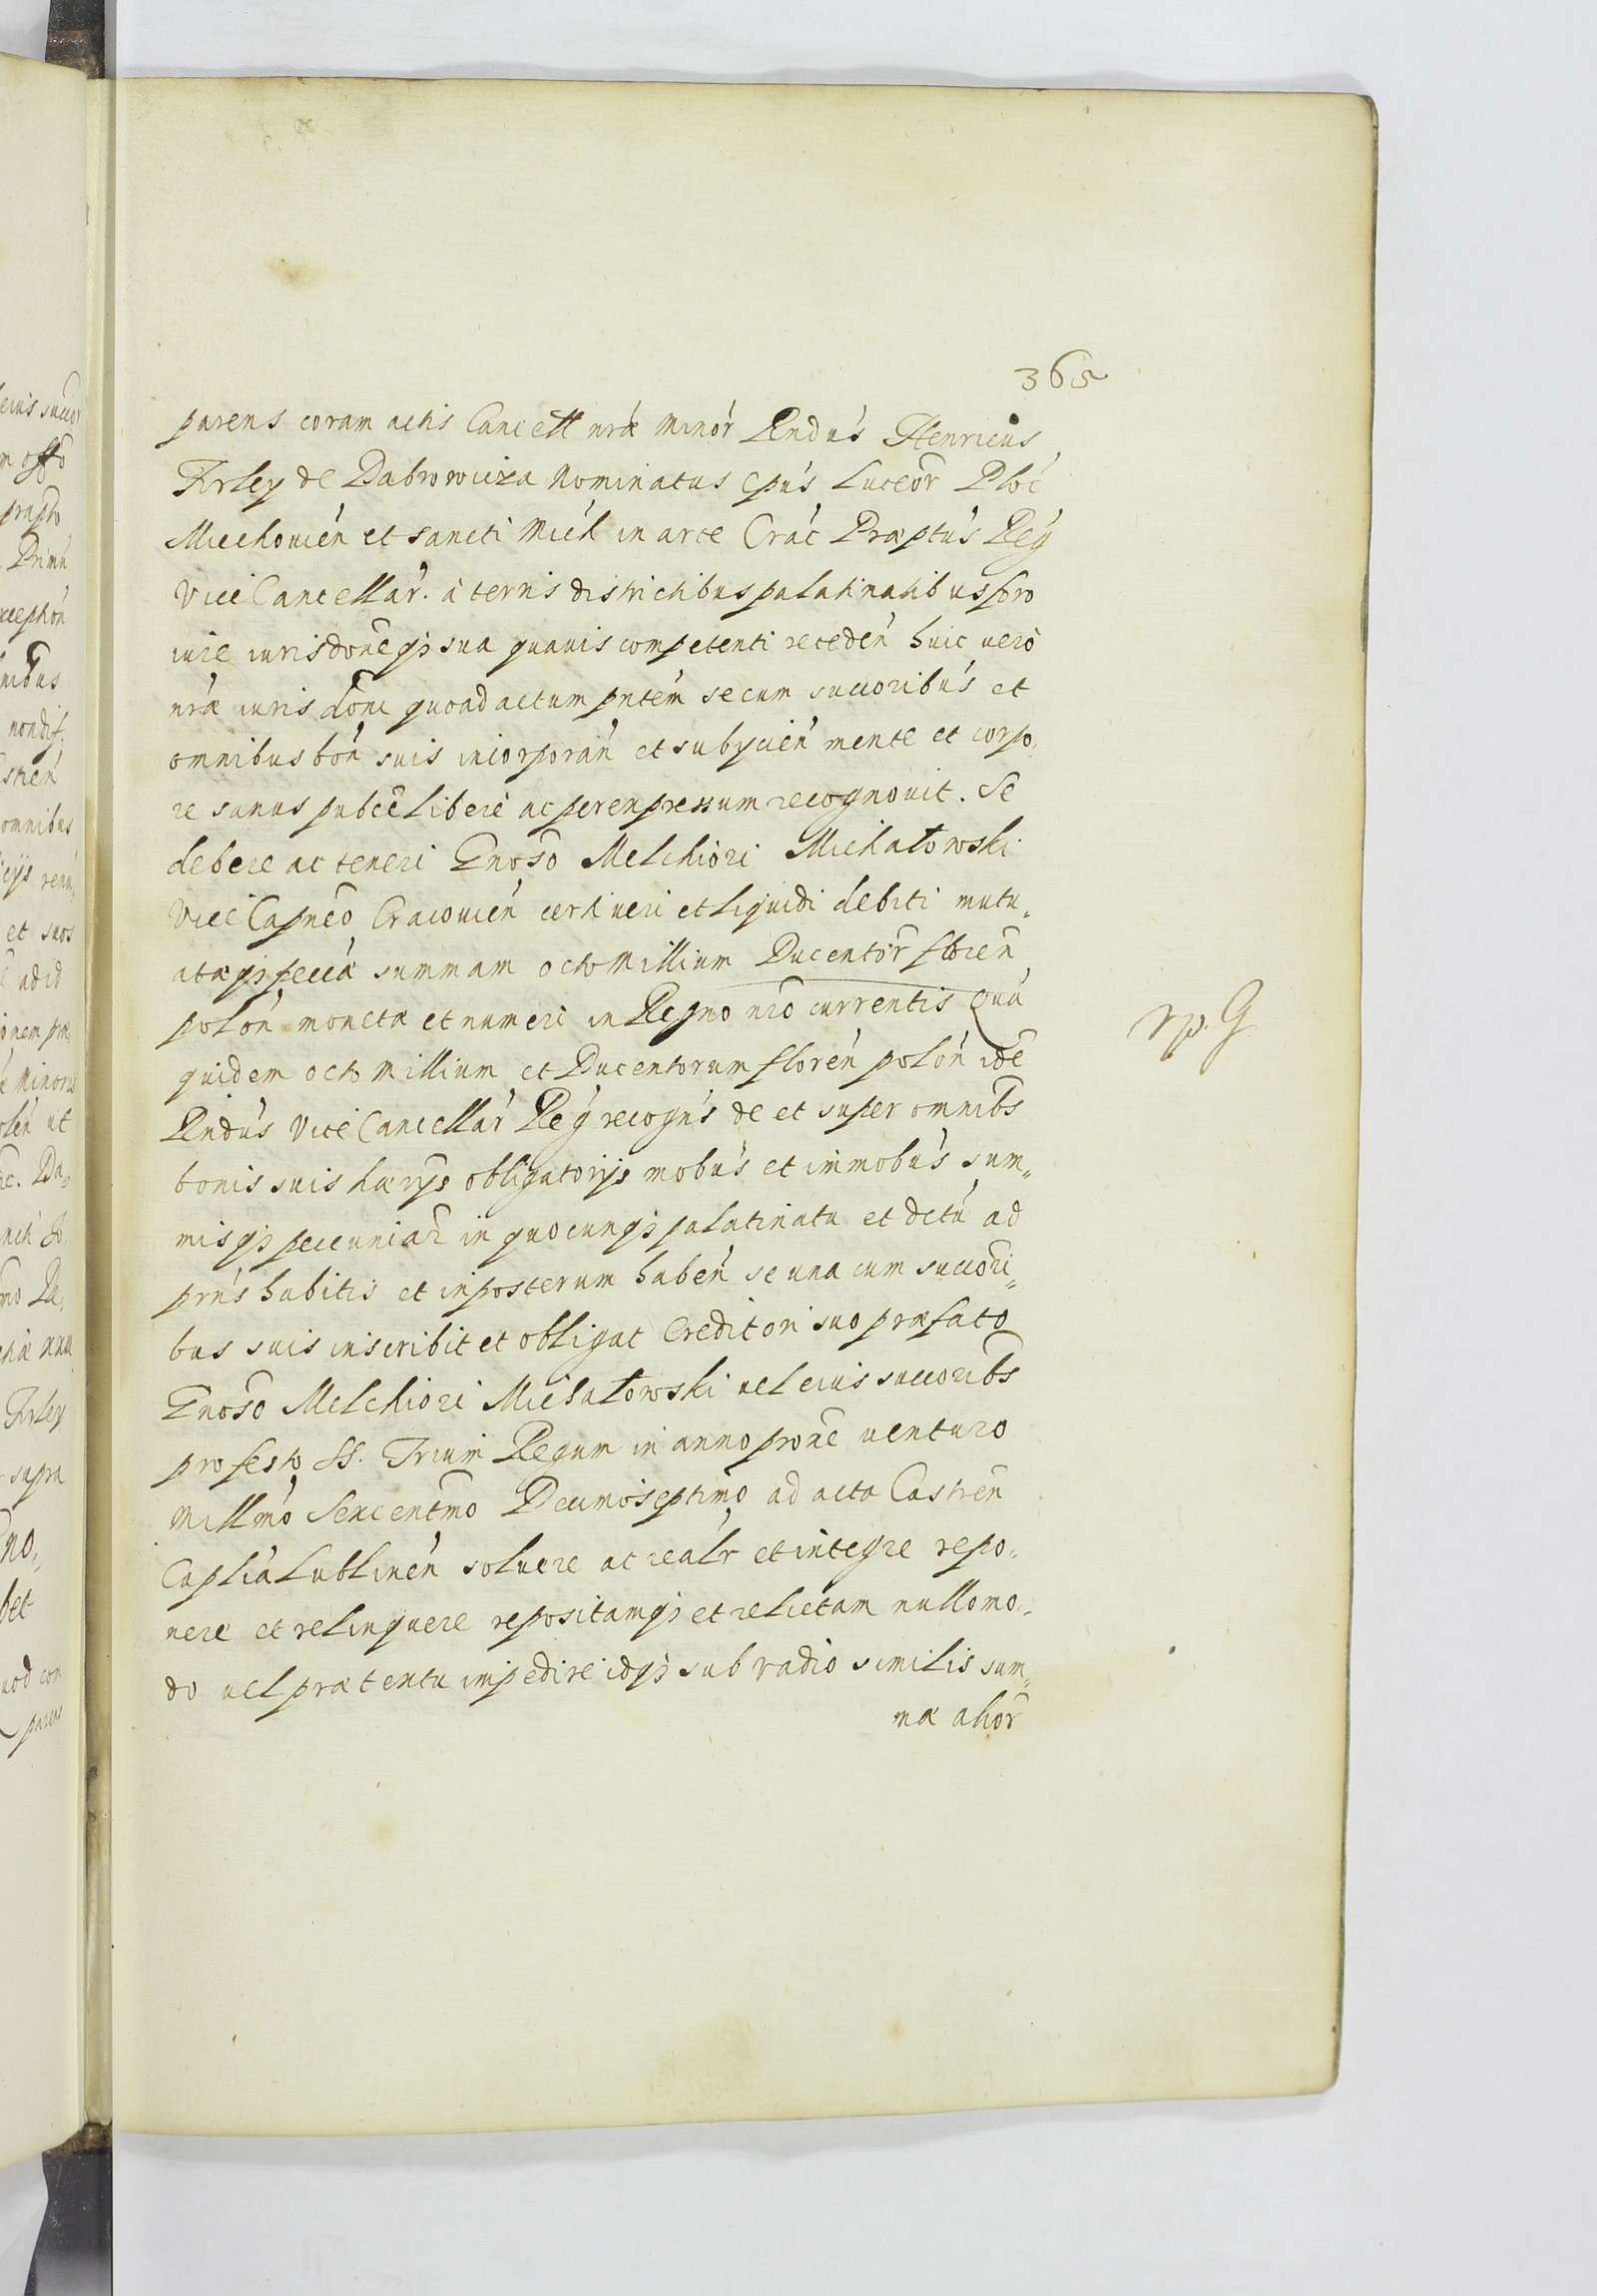 365
parens coram actis Cancell nrǽ minór Rndús Henricus
Firley de Dabrowicza Nominatus Epús Luceor̃ Ploć
Miechouień et sancti Mićh in arce Crać Præptús Reǵ
Vice Cancellár. à terris districtibus palatinatibus foro
iure iurisdoñe qȝ sua quauis competenti recedeń huic uerò
nrǽ iuris doñi quoad actum pntém se cum succoribús et
omnibus bóń suis incorporáń et subyciéń mente et corpo,
re sanus pubcẽ liberè ac per expressum recognouit. Se
debere ac teneri Gnoso Melchiori Michałowski
Vice Capneo Cracouień certi ueri et liquidi debiti mutu„
atæ qȝ pecciǽ summam octo Millium Ducentor̃ floreñ
polóń monetæ et numeri in Regno nr̃o currentis Quá
quidem octo Millium et Ducentorum floréń polóń idẽ
Rndús Vice Cancellár Reǵ recogńs de et super omnibs
bonis suis hæryś obligatoriys mobús et immobús sum„
mis qȝ pecuniar̃ in quocunqȝ palatinatu et dctú ad
prńs habitis et inposterum habéń se una cum succori„
bus suis inscribit et obligat Creditori suo præfato
Gnoso Melchiori Michałowski uel eius succoribs
pro festo SS. Trium Regum in anno proxẽ venturo
Millmó Sexcentmo Decimoseptimo ad acta Castreñ
Caplia Lublinéń soluere ac realr et integre repo„
nere et relinquere repositamqȝ et relictam nullo mo„
do uel prætextu impedire idqȝ sub vadio similis sum„
mæ alior̃
rp. G